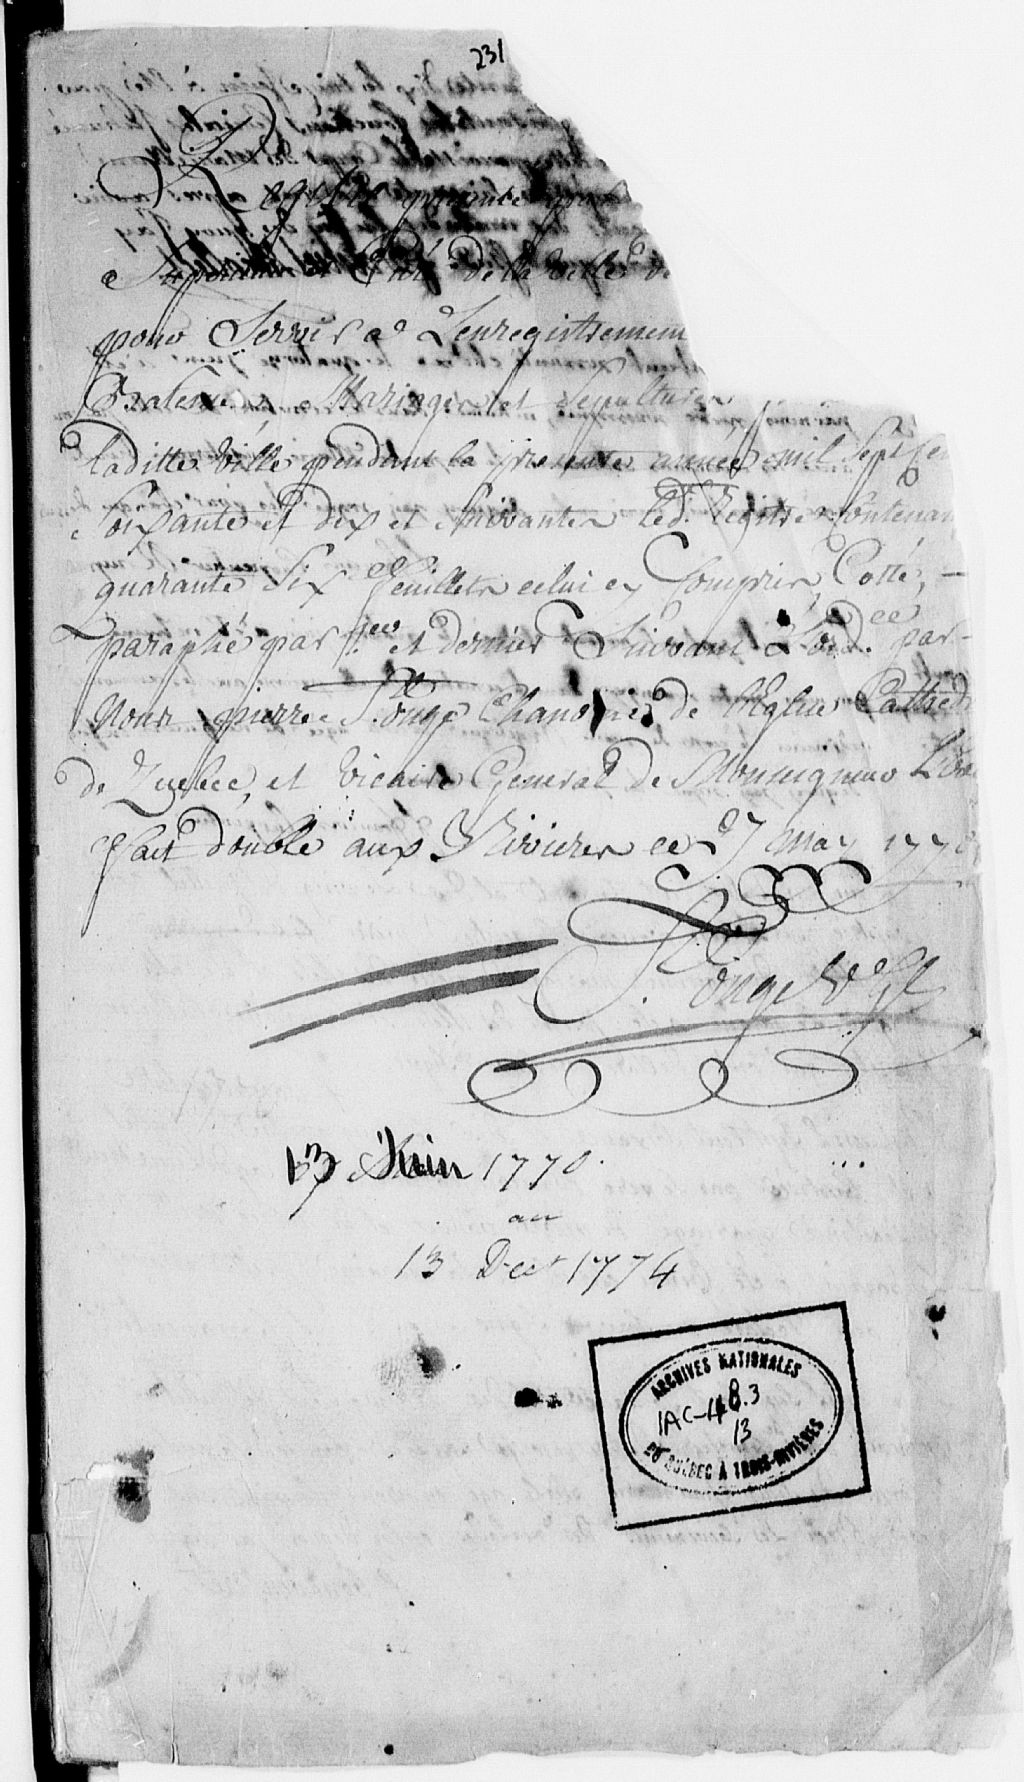 231
Registre
pour Servir a L'enregistrement
Batesmes, Mariages et Sepultures
laditte Ville pendant la presente année mil Sept Cen
Soixante et dix et Suivantes led. Registre Contenan
quarante Six feuillets celui cy Compris, Cotté,
paraphé par p.er et dernier Suivant L'ord.ce par
Nous pierre S.onge Chanoine de l'Eglise Cathed
de Quebec, et Vicaire General de Monseigneur
fait double aux 3 Rivieres ce 27 may 1770
S. onge V.G.
13 Juin 1770.
au
13 Decr 1774
ARCHIVES NATIONALES
1AC-48.3
13
DU QUÉBEC À TROIS-RIVIÈRES